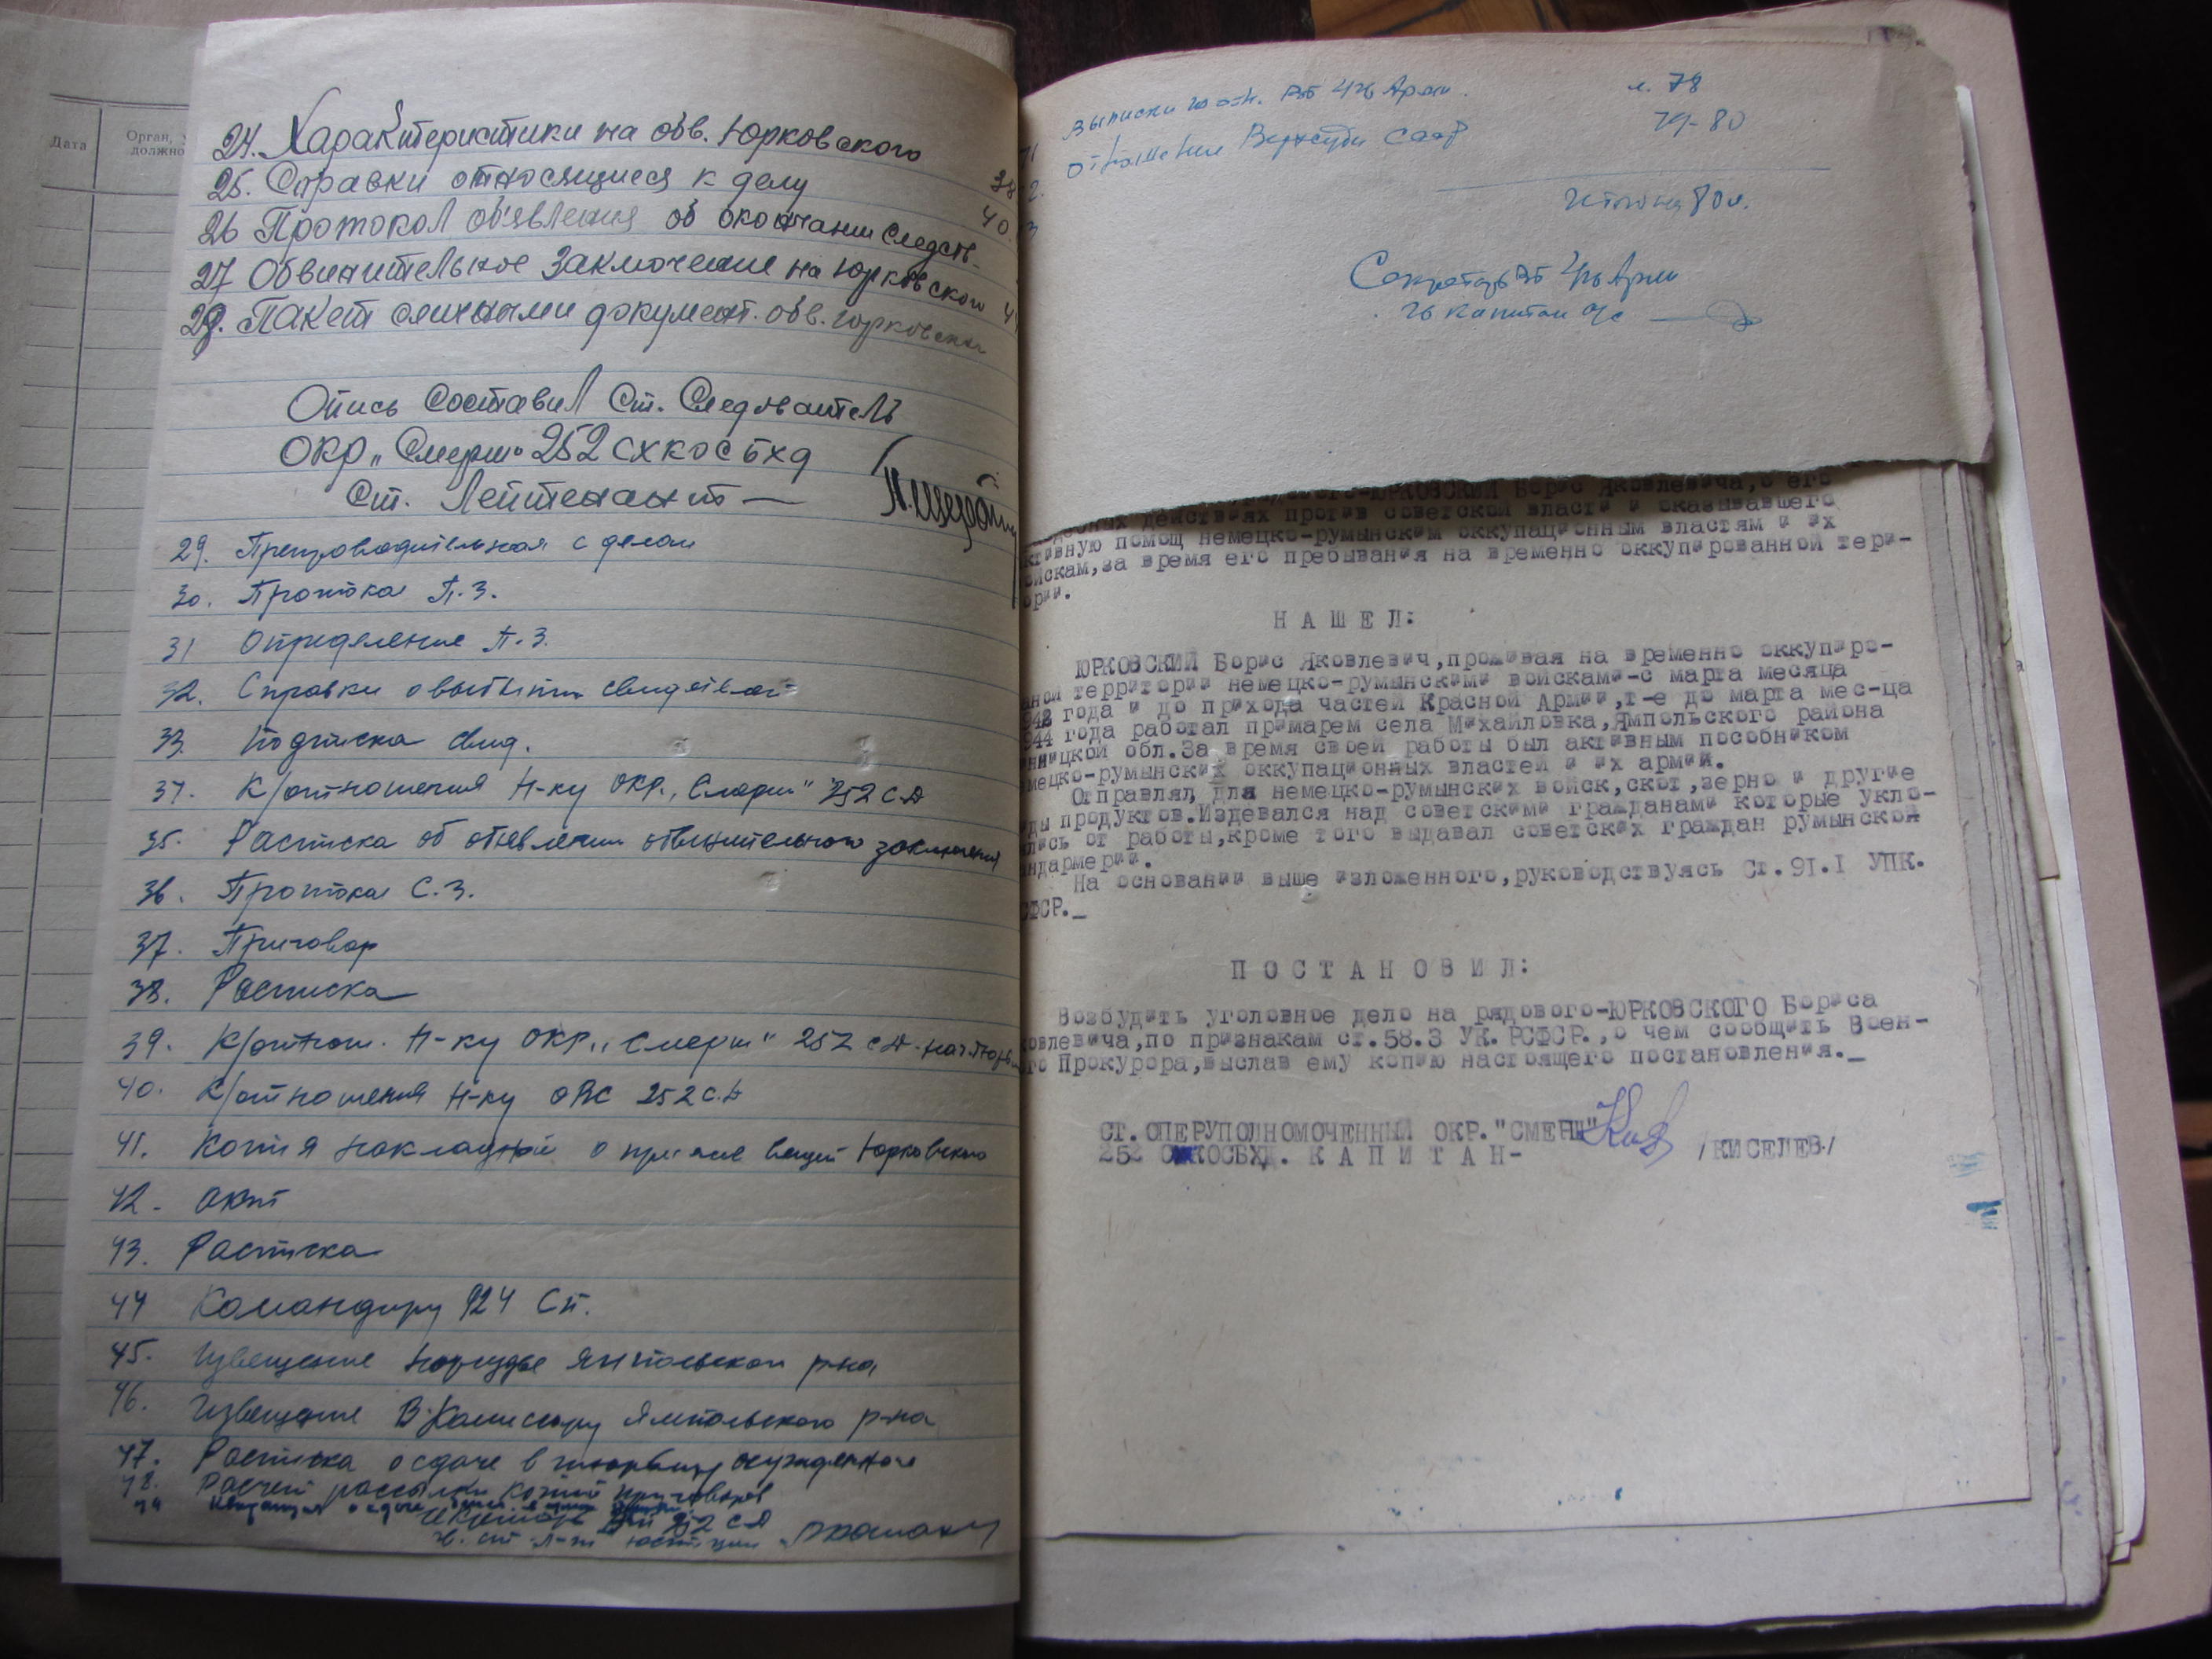 Дата
Орган,
должно
24. Характеристики на обв. Юрковского
38
25. Справки относящиеся к делу
40
26 Протокол объявления об окончании следств.
27 Обвинительное заключение на Юрковского
28. Пакет с личными документ. обв. Юрковск
Опись составил Ст. Следователь
ОКР „Смерш" 252 СХКОСБХД
Ст. Лейтенант —
29. Препроводительная с делом
30. Протокол П.З.
31 Определение П.З.
32. Справки о свидетел
33. Подписка свид.
34. К/отношения Н-ку ОКР. „Смерш" 252 СД
35. Расписка об объявлении обвинительного заключения
36. Протокол С.З.
37. Приговор
38. Расписка
39. К/отнош. Н-ку ОКР. „Смерш" 252 СД
40. К/отношения Н-ку 252 С.Д
41. Копия накладной о приеме вещей Юрковского
42. Акт
43. Расписка
44 Командиру 924 Сп.
45. Извещение Ямпольского р-на
46. Извещение В.Комиссару Ямпольского р-на
47. Расписка о сдаче в тюрьму осужденного
48. Расчет рассылки копий приговоров
252 СД
Выписки ВТ 4гв Арми. л. 78
Отношение Верхсуда СССР 79-80
80 л.
Секретарь ВТ 4гв Арми
гв капитан а/с
ЮРКОВСКИЙ Борис Яковлевича, о его
действиях против советской власти и оказывавшего
ктивную помощ немецко-румынским оккупационным властям и их
ойскам,за время его пребывания на временно оккупированной тери-
ории.
НАШЕЛ:
ЮРКОВСКИЙ Борис Яковлевич,проживая на временно оккупиро-
анной территории немецко-румынскими войсками-с марта месяца
942 года и до прихода частей Красной Армии,т-е до марта мес-ца
944 года работал примарем села Михайловка,Ямпольского района
нницкой обл.За время своей работы был активным пособником
мецко-румынских оккупационных властей и их армий.
Отправлял для немецко-румынских войск,скот,зерно и другие
ды продуктов.Издевался над советскими гражданами которые укло-
лись от работы,кроме того выдавал советских граждан румынской
ндармерии.
На основании выше изложенного,руководствуясь Ст.91.I УПК.
СФСР._
ПОСТАНОВИЛ:
Возбудить уголовное дело на рядового-ЮРКОВСКОГО Бориса
ковлевича,по признакам ст.58.3 УК.РСФСР.,о чем сообщить Воен-
ого Прокурора,выслав ему копию настоящего постановления._
СТ.ОПЕРУПОЛНОМОЧЕННЫЙ ОКР."СМЕРШ"
252 СХКОСБХД. КАПИТАН- /КИСЕЛЕВ/